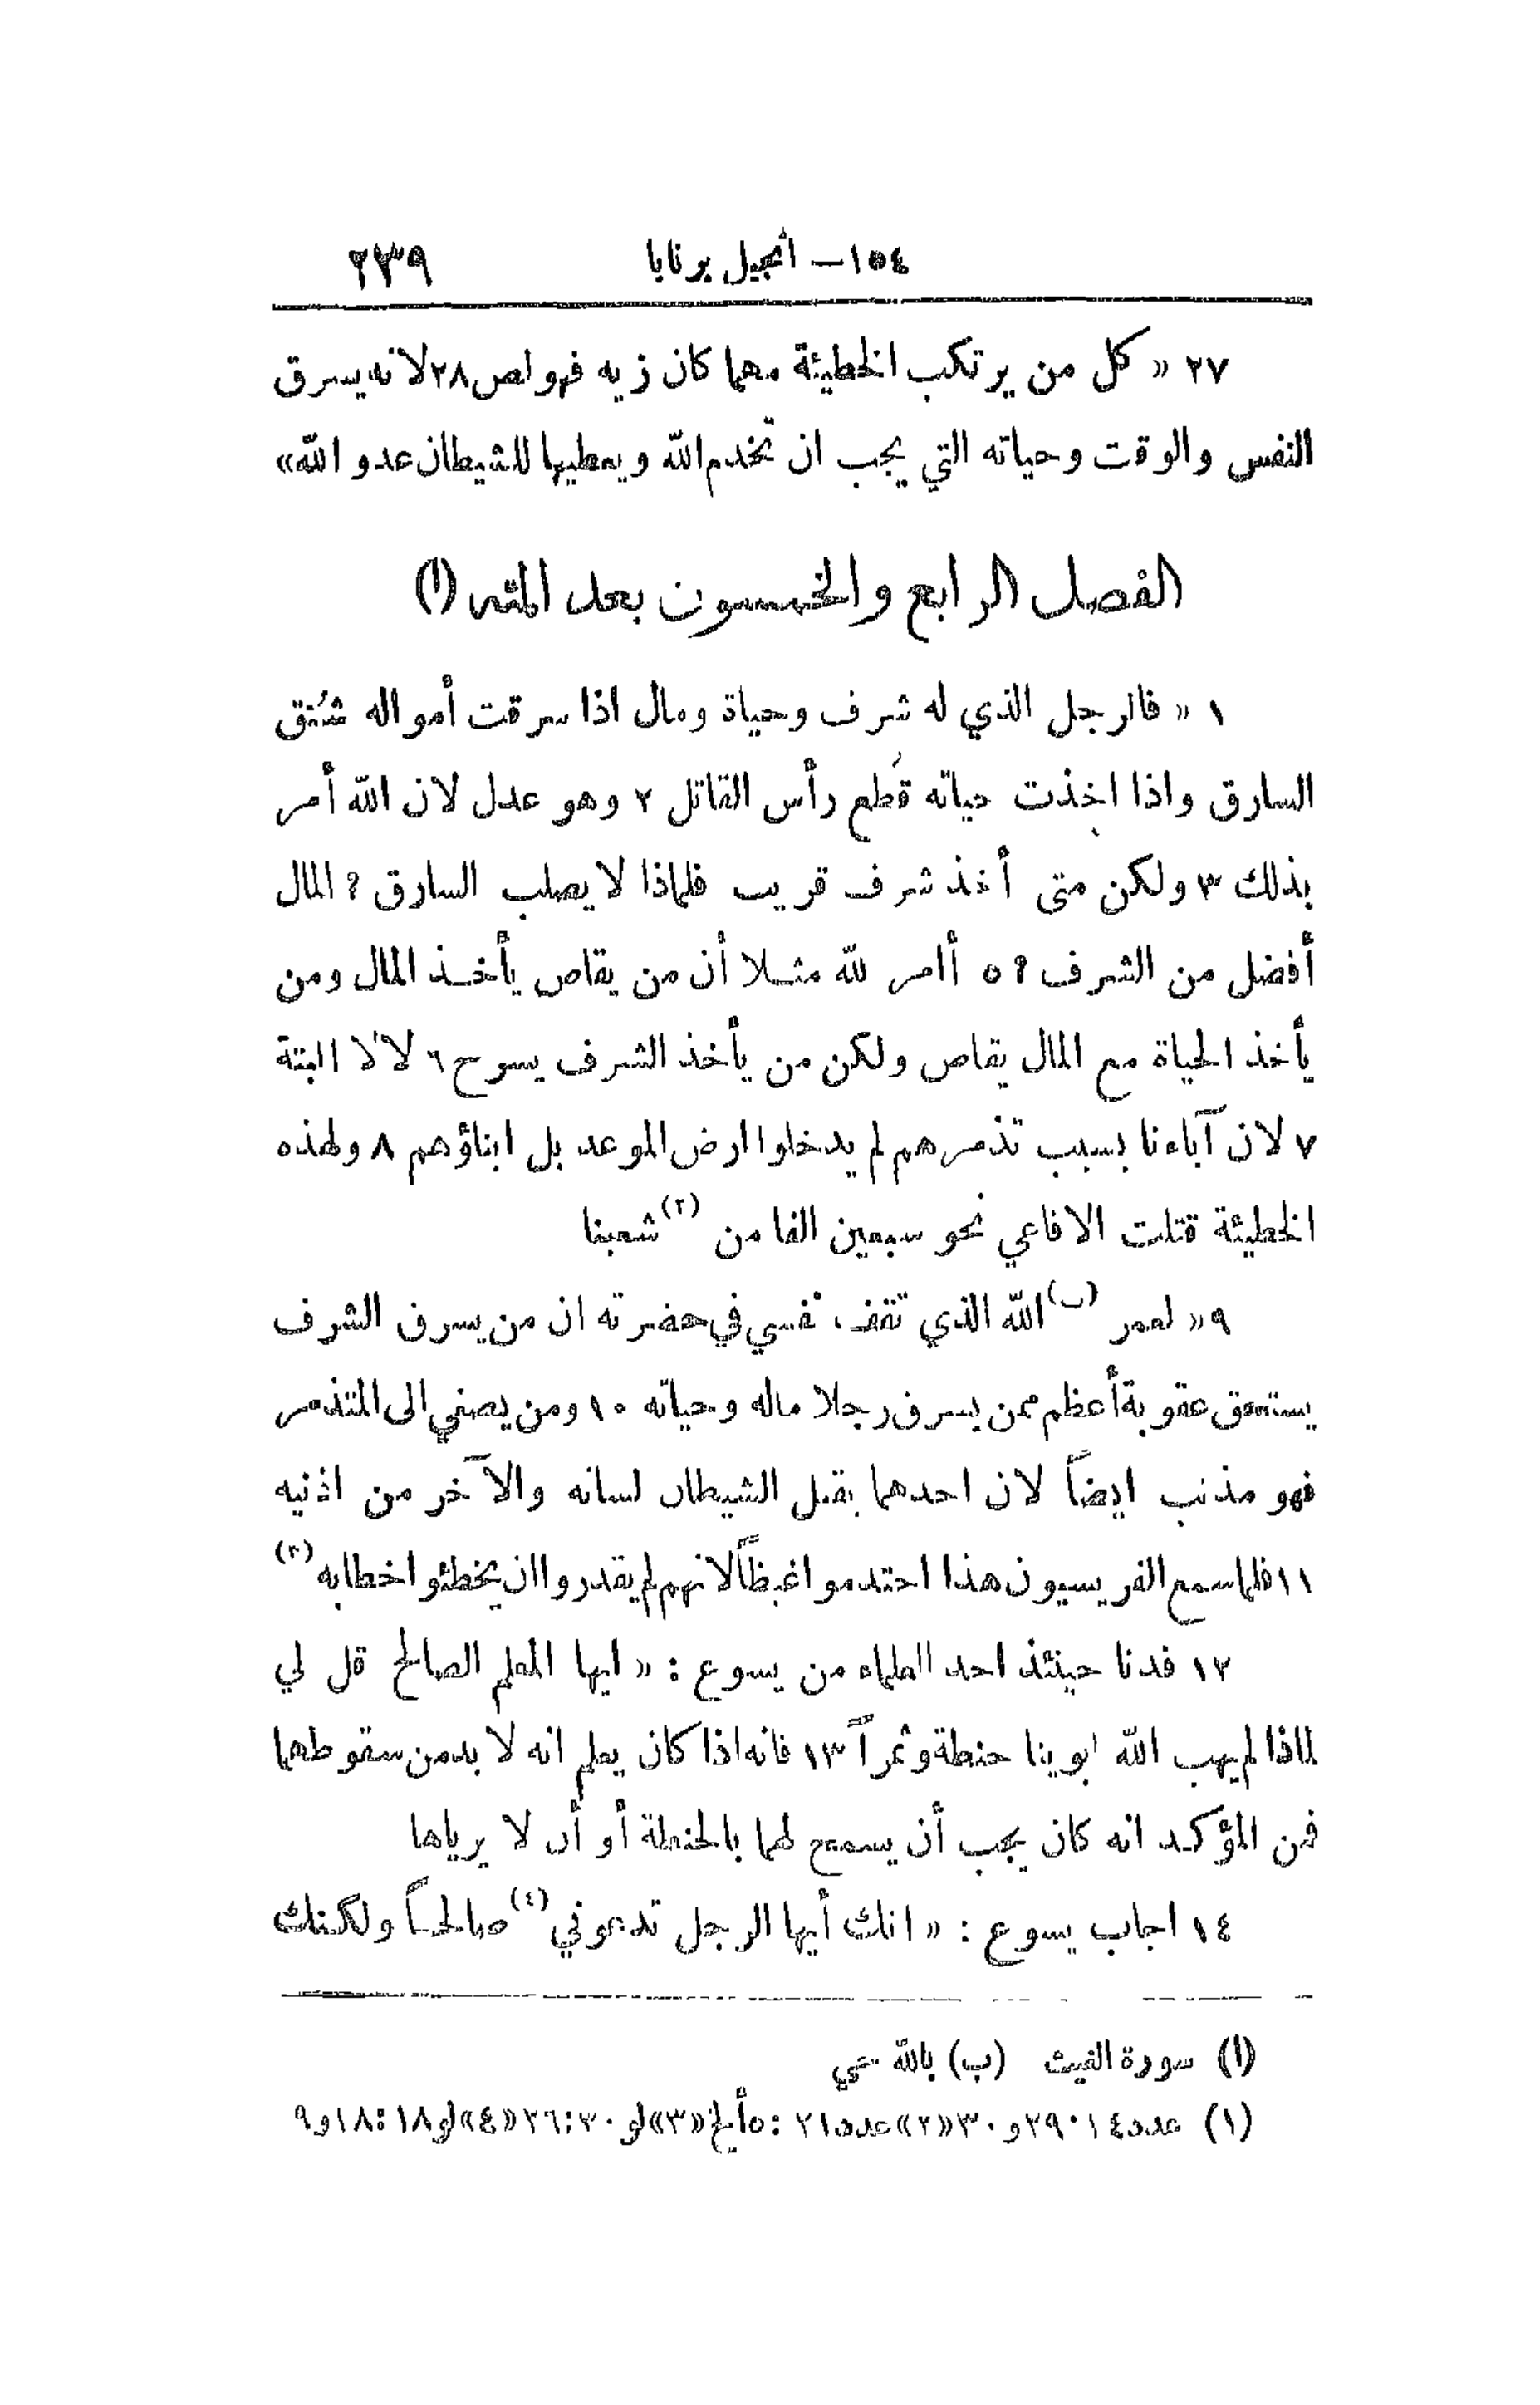 ١٥٤ – أنجيل برنابا ٢٣٩
٢٧ « كل من يرتكب الخطيئة مهما كان زيه فهو لص ٢٨ لانه يسرق
النفس والوقت وحياته التي يجب ان تخدم الله ويعطيها للشيطان عدو الله»
الفصل الرابع والخمسون بعد المئه (ا)
١ « فالرجل الذي له شرف وحياة ومال اذا سرقت أمواله شُنق
السارق واذا اخذت حياته قُطع رأس القاتل ٢ وهو عدل لان الله أمر
بذلك ٣ ولكن متى أخذ شرف قريب فلماذا لا يصلب السارق ؟ المال
أفضل من الشرف ؟ ٥ أأمر لله مثلا أن من يقاص يأخذ المال ومن
يأخذ الحياة مع المال يقاص ولكن من يأخذ الشرف يسرح ٦ لا لا البتة
٧ لان آباءنا بسبب تذمرهم لم يدخلوا ارض الموعد بل ابناؤهم ٨ ولهذه
الخطيئة قتلت الافاعي نحو سبعين الفا من (٢) شعبنا
٩ « لعمر (ب) الله الذي تقف نفسي في حضرته ان من يسرق الشرف
يستحق عقوبة أعظم ممن يسرق رجلا ماله وحياته ١٠ ومن يصغي الى المتذمر
فهو مذنب ايضاً لان احدهما يقبل الشيطان لسانه والآخر من اذنيه
١١ فلما سمع الفريسيون هذا احتدموا غيظاً لانهم لم يقدروا ان يخطئوا خطابه (٣)
١٢ فدنا حينئذ احد العلماء من يسوع : « ايها المعلم الصالح قل لي
لماذا لم يهب الله ابوينا حنطة وثمراً ١٣ فانه اذا كان يعلم انه لا بد من سقوطهما
فمن المؤكد انه كان يجب أن يسمح لهما بالحنطة أو أن لا يرياها
١٤ اجاب يسوع : « انك أيها الرجل تدعوني (٤) صالحاً ولكنك
(ا) سورة الغيث (ب) بالله حي
(١) عدد ١٤ : ٢٩ و ٣٠ «٢» عدد ٢١ : ٥ أ لخ «٣» لو ٢٠ : ٢٦ «٤» لو ١٨ : ١٨ و ٩